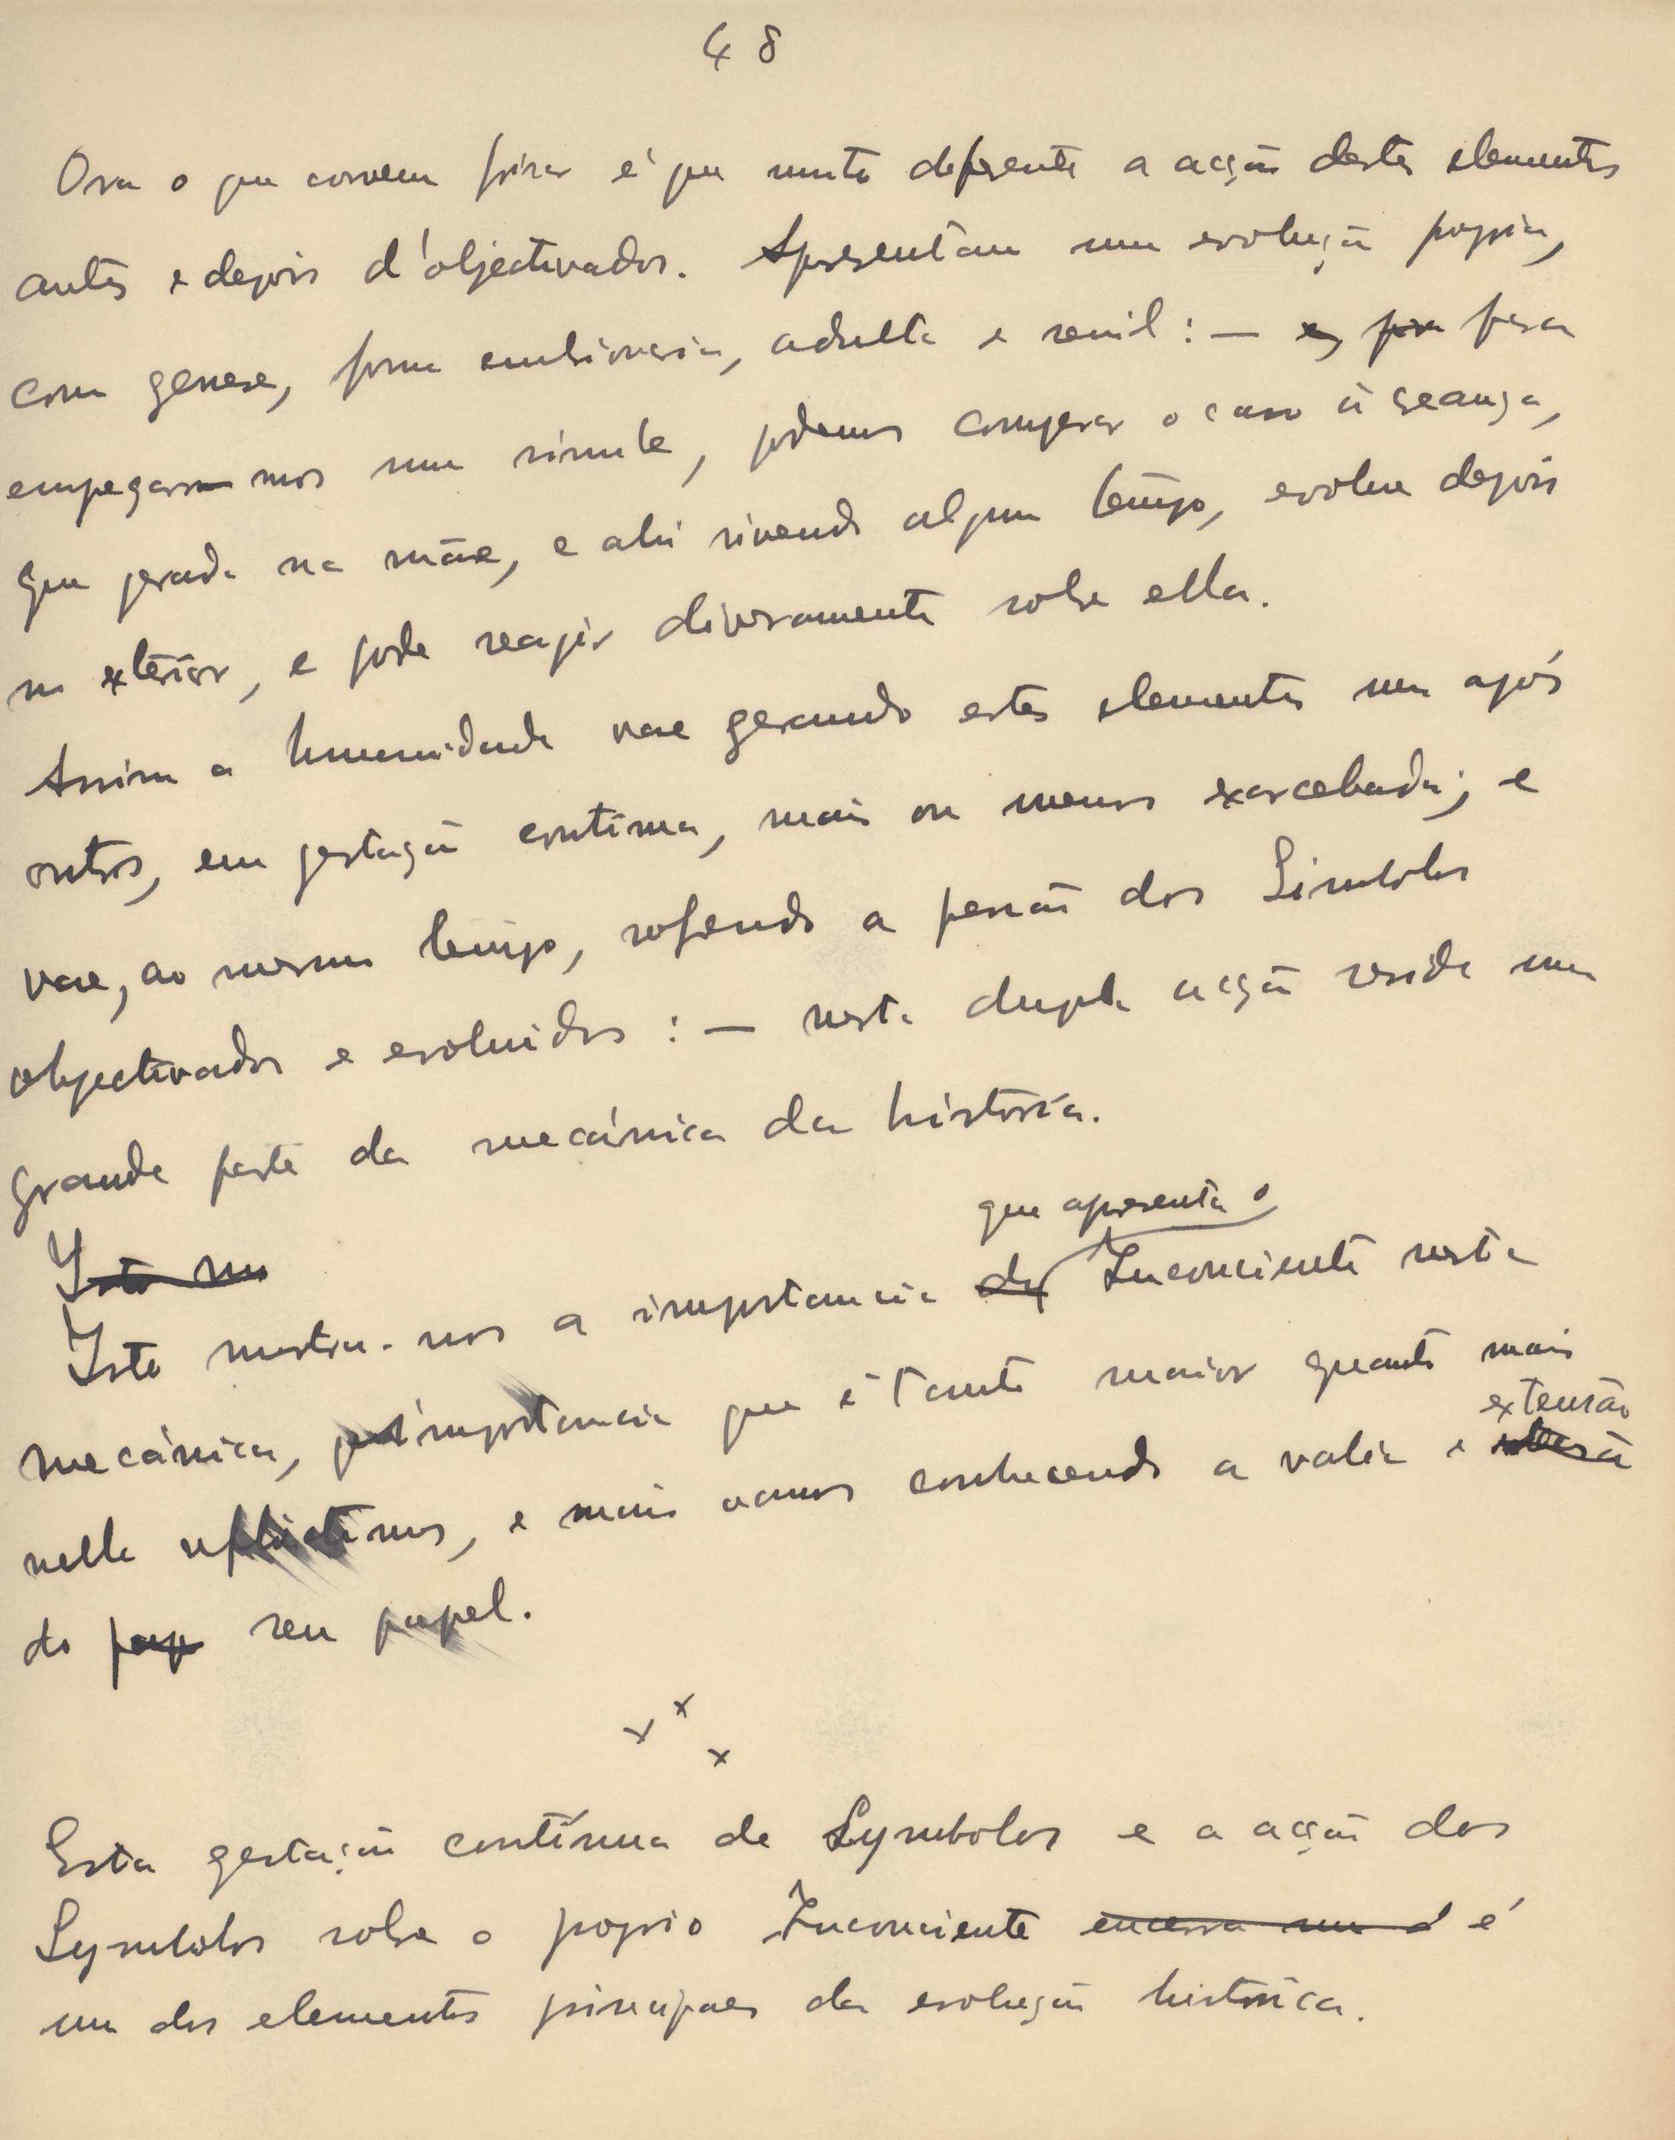 48
Ora o que convem frisar é que muito diferente a acção destes elementos
antes e depois d'objectivados. Apresentam uma evolução propria,
com genese, forma embrionaria, adulta e senil: — e, para para
empregarmos um simile, podemos comparar o caso á creança,
que gerada na mãe, e ahi vivendo algum tempo, evolue depois
no exterior, e pode reagir diversamente sobre ella.
Assim a humanidade vae gerando estes elementos uns após
outros, em gestação continua, mais ou menos exarcebada; e
vae, ao mesmo tempo, sofrendo a pressão dos Simbolos
objectivados e evoluidos: — nesta dupla acção reside uma
grande parte da mecánica da história.
Isto no
que apresenta o
Isto mostra-nos a importancia do Inconsciente nesta
mecánica, importancia que é tanto maior quanto mais
extensão
nella reflectimos, e mais vamos conhecendo a valia e
do pap seu papel.
x x x
Esta gestação contínua de Symbolos e a acção dos
Symbolos sobre o proprio Inconsciente encerra um d é
um dos elementos principaes da evolução histórica.